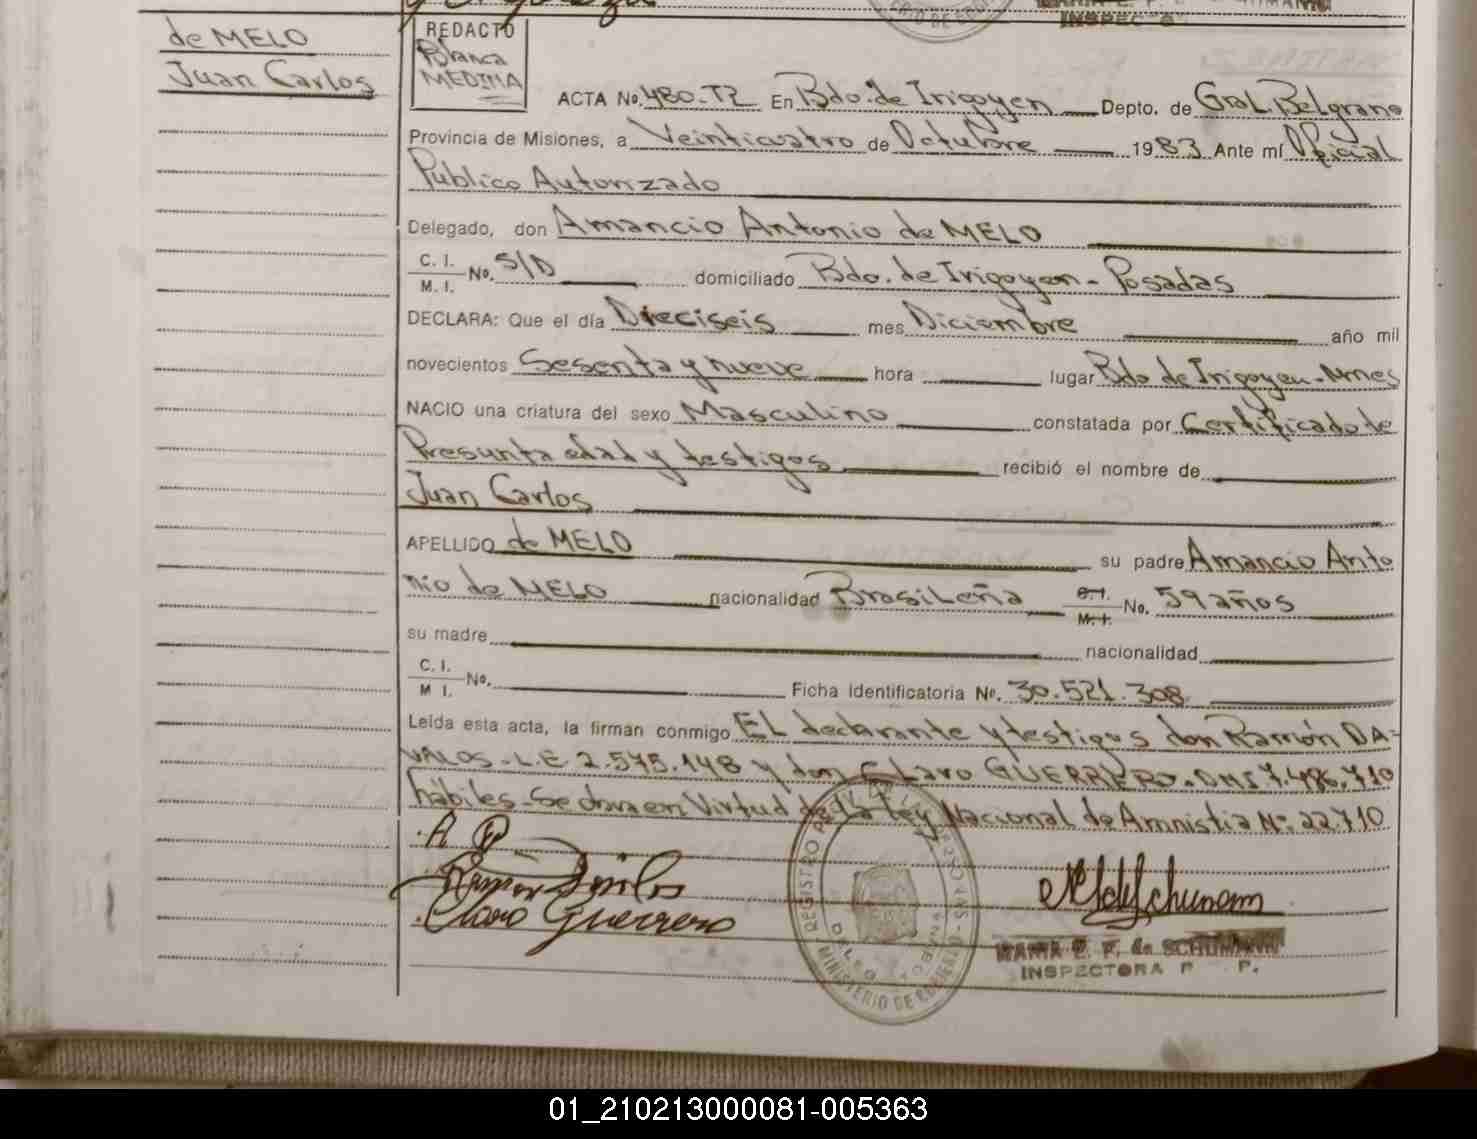 de MELO
Juan Carlos
REDACTO
Blanca
MEDINA
INSPEC
ACTA No. 480-T2 En Bdo. de Irigoyen Depto. de Gral. Belgrano
Provincia de Misiones, a Veinticuatro de Octubre 1983 Ante mí Oficial
Público Autorizado
Delegado, don Amancio Antonio de MELO
C. I. / M. I. No. S/D domiciliado Bdo. de Irigoyen - Posadas
DECLARA: Que el día Dieciseis mes Diciembre año mil
novecientos Sesenta y nueve hora lugar Bdo de Irigoyen - Mnes
NACIO una criatura del sexo Masculino constatada por Certificado de
Presunta edad y testigos recibió el nombre de
Juan Carlos
APELLIDO de MELO su padre Amancio Anto
nio de MELO nacionalidad Brasileña C. I. / M. I. No. 59 años
su madre nacionalidad
C. I. / M I. No. Ficha Identificatoria No. 30.521.308
Leída esta acta, la firman conmigo EL declarante y testigos don Ramón DA-
VALOS - L.E. 2.575.148 y don Claro GUERRERO - DNI 7.486.710
hábiles - Se labra en Virtud de La Ley Nacional de Amnistia Nº 22710
Ramon Davalos
Claro Guerrero
REGISTRO DE LAS PERSONAS
MINISTERIO DE GOBIERNO
MARIA E. F. de SCHUMANN
INSPECTORA
01_210213000081-005363